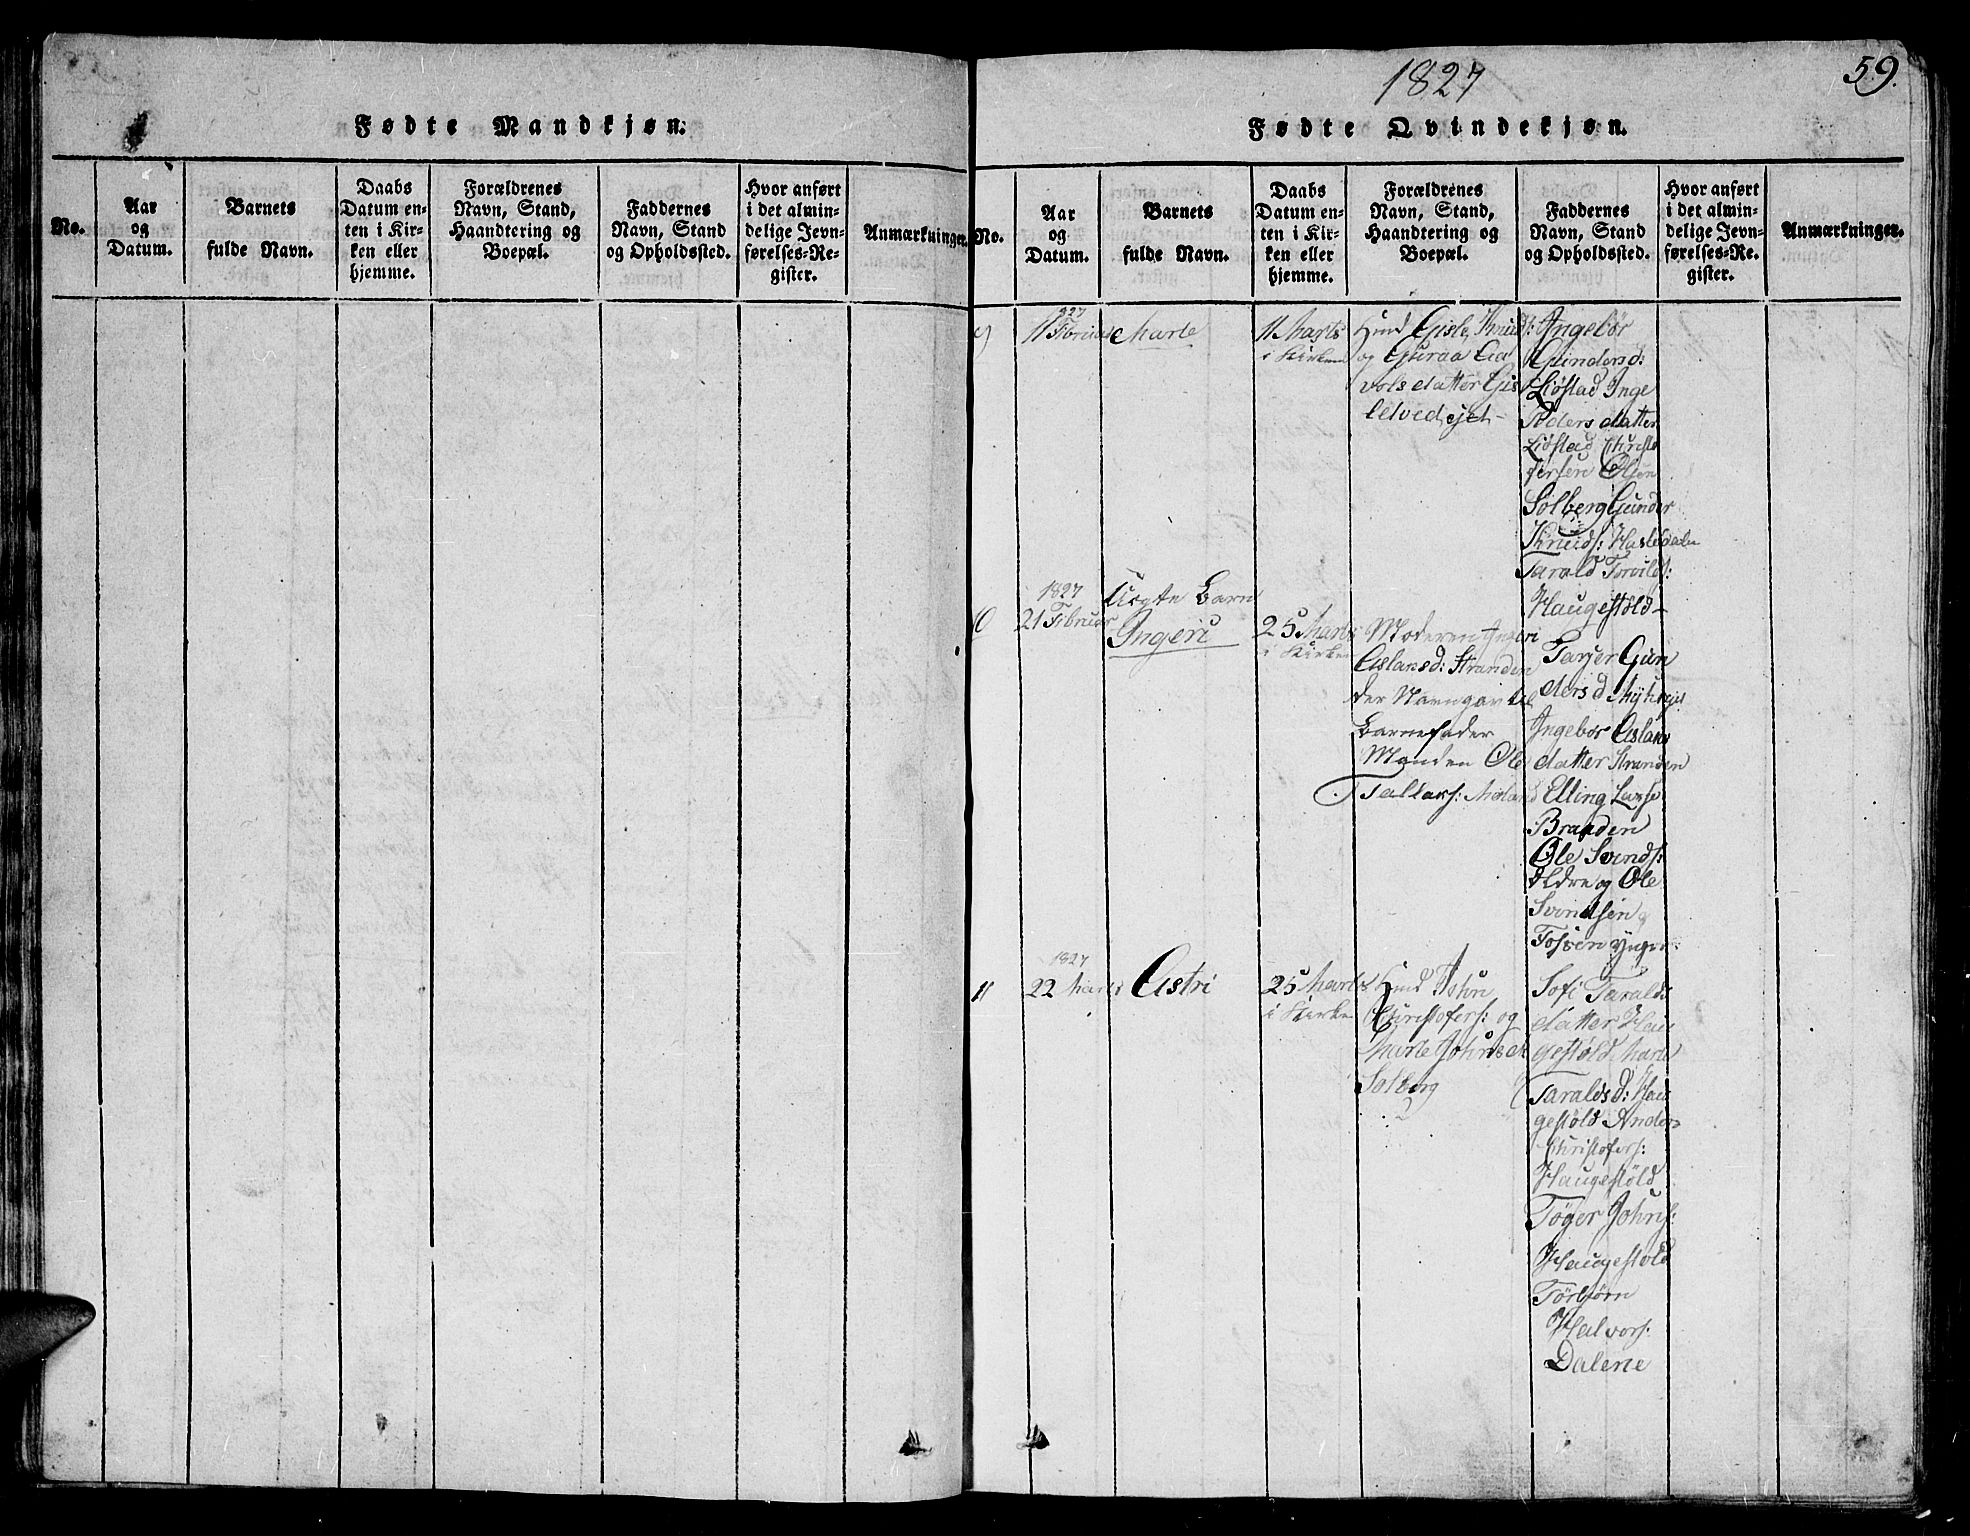 Fødte Mandkjøn.
No.
Aar
og
Datum.
Barnets
fulde Navn.
Daabs
Datum en-
ten i Kir-
ken eller
hjemme.
Forældrenes
Navn, Stand,
Haandtering og
Boepæl.
Faddernes
Navn, Stand
og Opholdssted.
Hvor anført
i det almin-
delige Jevn-
førelses-Re-
gister.
Anmærkninger.
1827
59.
Fødte Qvindekjøn.
No.
Aar
og
Datum.
Barnets
fulde Navn.
Daabs
Datum en-
ten i Kir-
ken eller
hjemme.
Forældrenes
Navn, Stand,
Haandtering og
Boepæl.
Faddernes
Navn, Stand
og Opholdssted.
Hvor anført
i det almin-
delige Jevn-
førelses-Re-
gister.
Anmærkninger.
9
827
11 Februar
Marte
11 Marts
i Kirken
Hmd Gisle Knuds:
og Guraa Aa
vols datter Gis
letvedejet
Ingebør
Gundersd:
Liøstad Inge
Peders datter
Liøstad Christo
fersen Olsen
Solberg Gunder
Knuds: Hasledalen
Tarald Torvilds:
Haugestøld
10
1827
21 Februar
Uegte Barn
Ingeri
25 Marts
i Kirken
Moderen Ingeri
Aslansd: Stranden
der Navngav til
Barnefader
Manden Ole
Tallaks:
Tarjer Gun
ders d
Ingebor Aslans
datter Stranden
Elling Lars:
Braaden
Ole Svends:
og Ole
Svendsen
Tosven yngre
11
1827
22 Marts
Astri
25 Marts
i Kirken
Hmd John
Christofers: og
Marte Johns d
Solberg
Sofi Taralds
datter Hau
gestøld Marte
Taralds d: Hau
gestøld Anders
Christofers:
Haugestøld
Tøger Johns:
Haugestøld
Torbjørn
Halvors:
Dalene